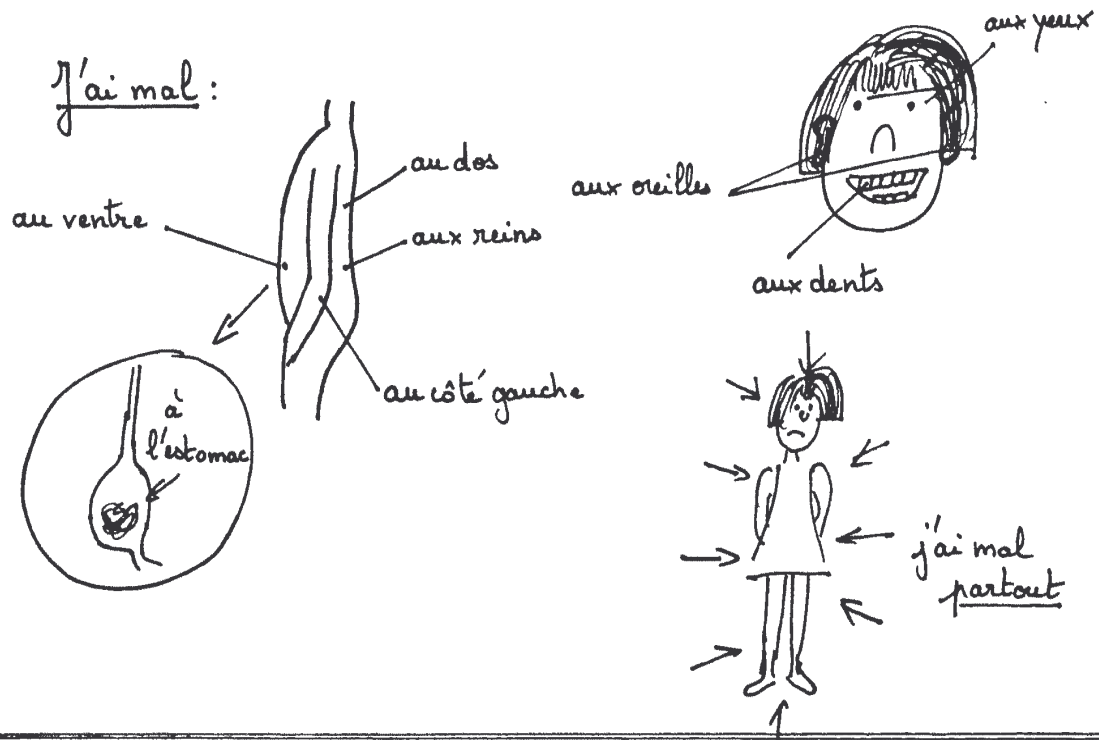 J'ai mal :
au dos
au ventre
aux reins
au côté gauche
à
l'estomac
aux yeux
aux oreilles
aux dents
j'ai mal
partout